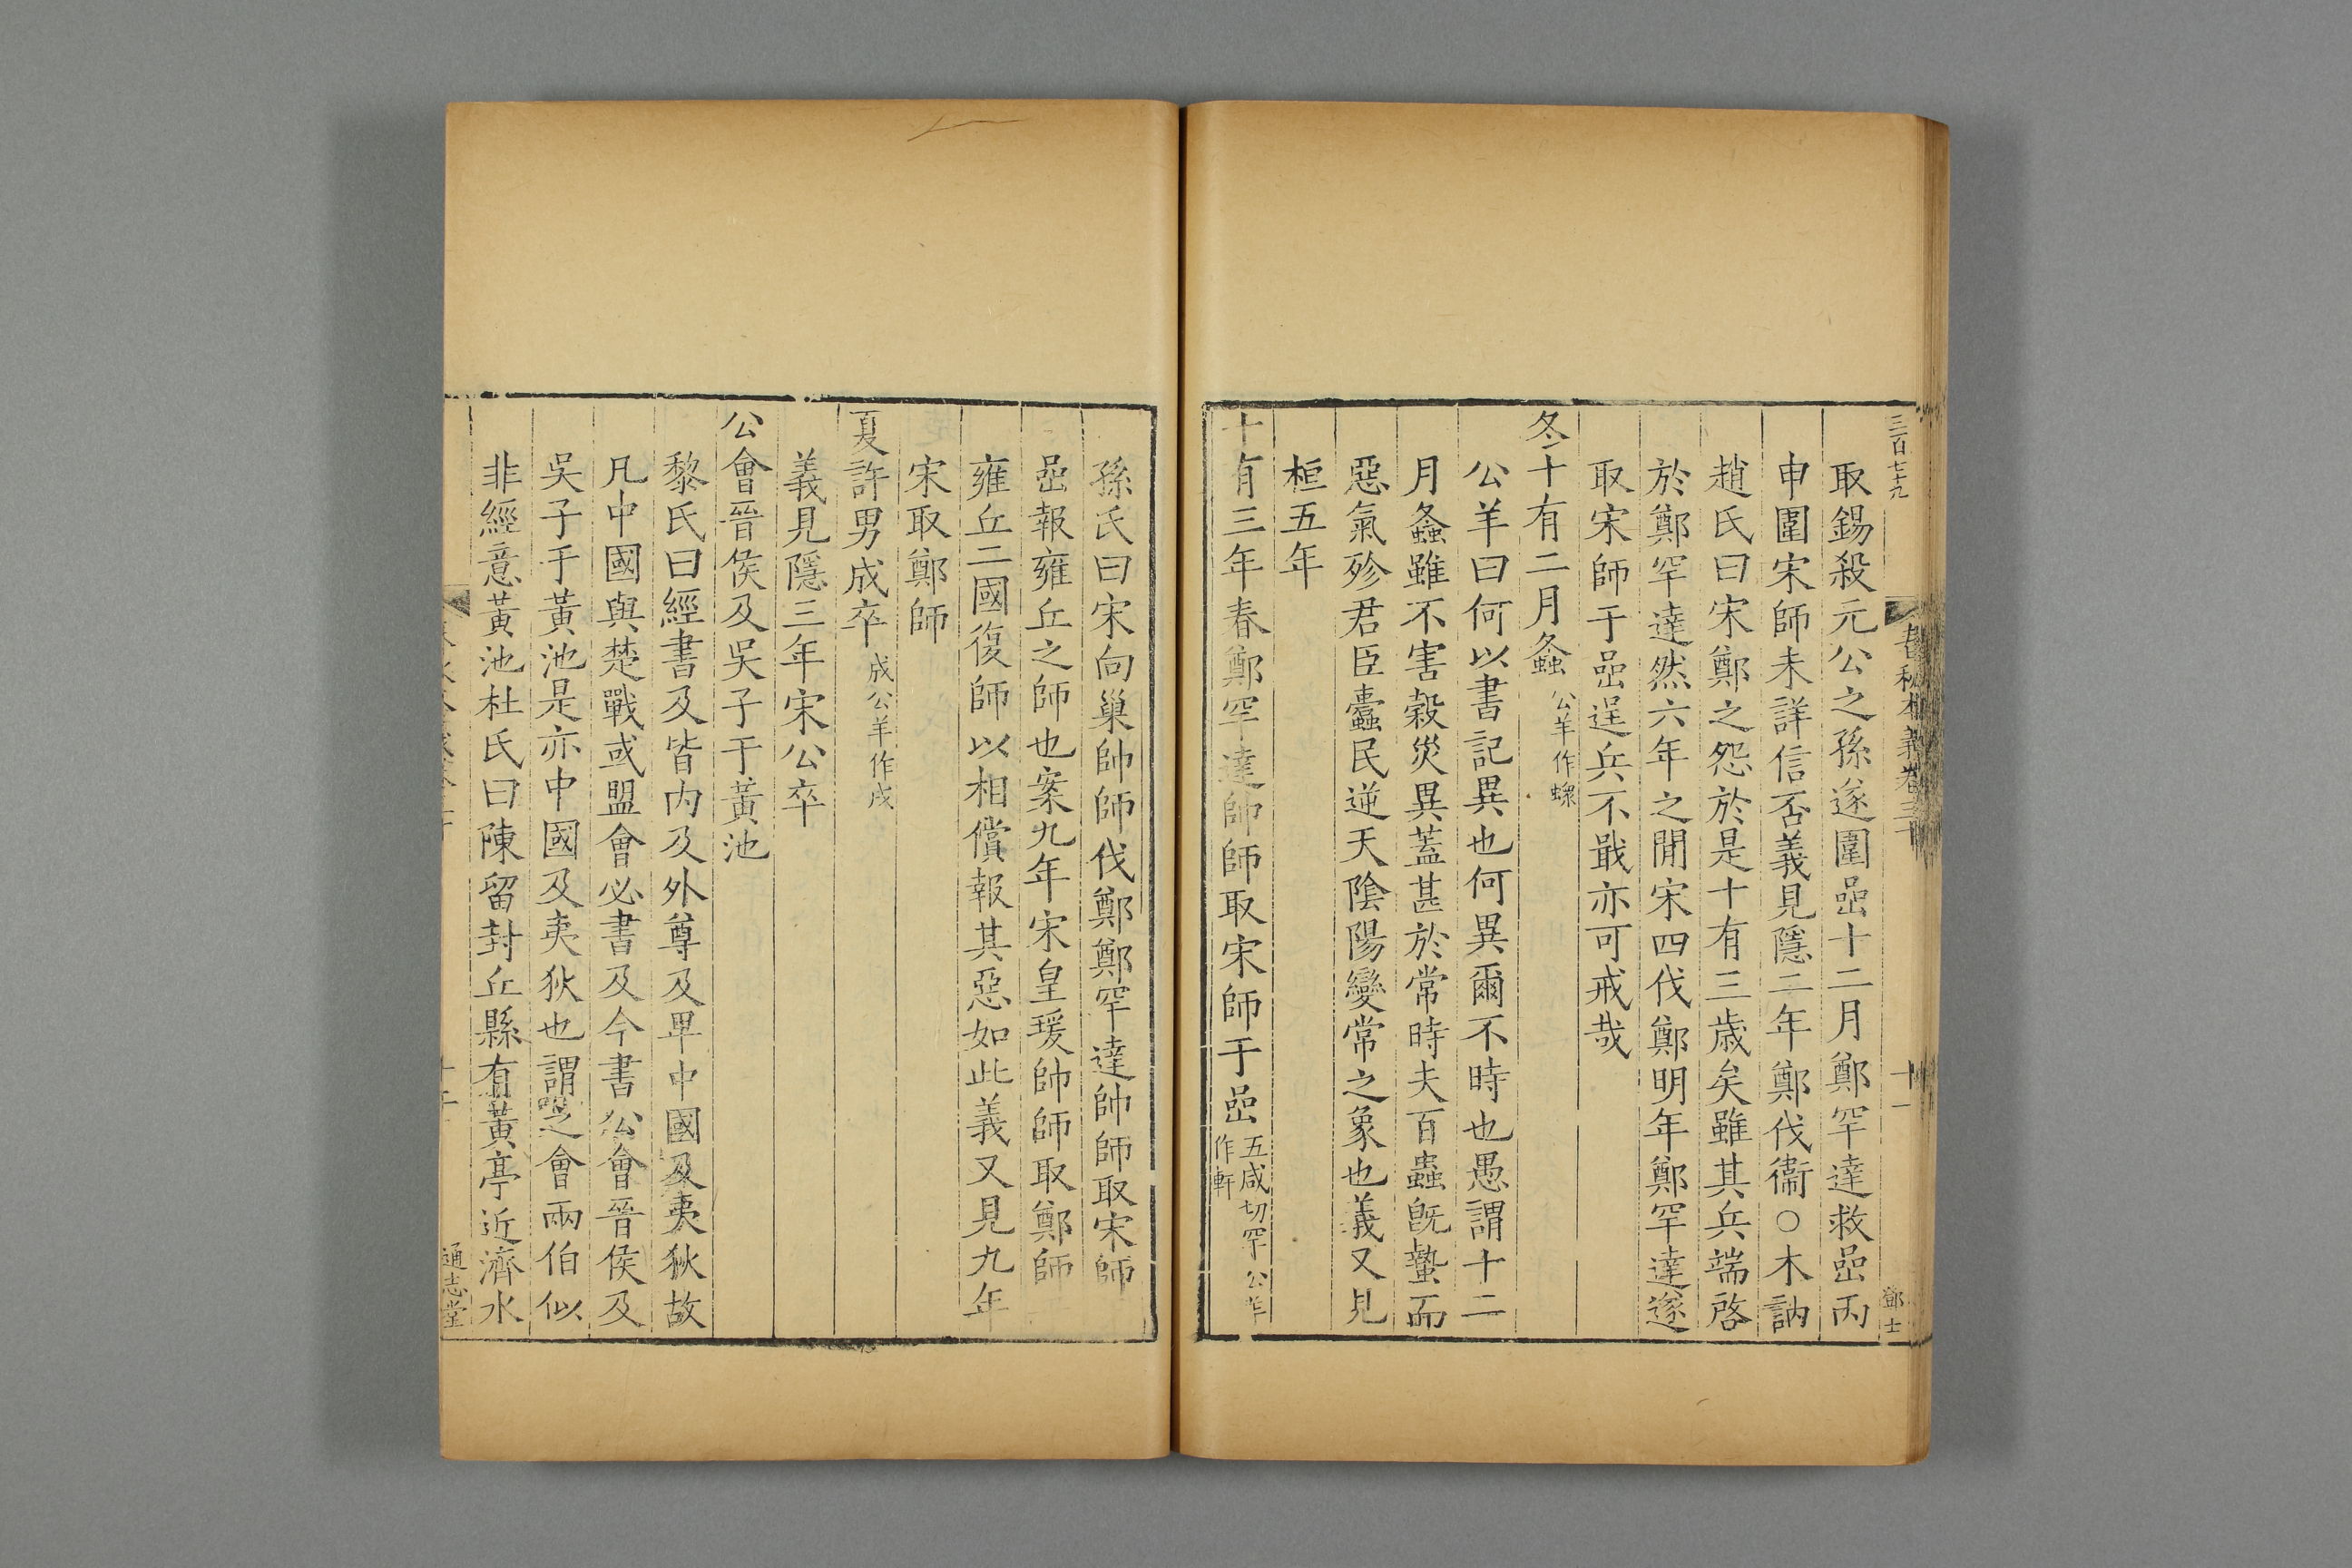 三百七十九
春秋本義卷三十
十一
鄧士
取錫殺元公之孫遂圍嵒十二月鄭罕達救嵒丙
申圍宋師未詳信否義見隱二年鄭伐衞○木訥
趙氏曰宋鄭之怨於是十有三歲矣雖其兵端啓
於鄭罕達然六年之閒宋四伐鄭明年鄭罕達遂
取宋師于嵒逞兵不戢亦可戒哉
冬十有二月螽公羊作蟓
公羊曰何以書記異也何異爾不時也愚謂十二
月螽雖不害穀災異蓋甚於常時夫百蟲旣蟄而
惡氣殄君臣蠹民逆天陰陽變常之象也義又見
桓五年
十有三年春鄭罕達帥師取宋師于嵒五咸切罕公羊作軒
孫氏曰宋向巢帥師伐鄭鄭罕達帥師取宋師
嵒報雍丘之師也案九年宋皇瑗帥師取鄭師
雍丘二國復師以相償報其惡如此義又見九年
宋取鄭師
夏許男成卒成公羊作戌
義見隱三年宋公卒
公會晉侯及吳子于黃池
黎氏曰經書及皆內及外尊及卑中國及夷狄故
凡中國與楚戰或盟會必書及今書公會晉侯及
吳子于黃池是亦中國及夷狄也謂之會兩伯似
非經意黃池杜氏曰陳留封丘縣有黃亭近濟水
通志堂